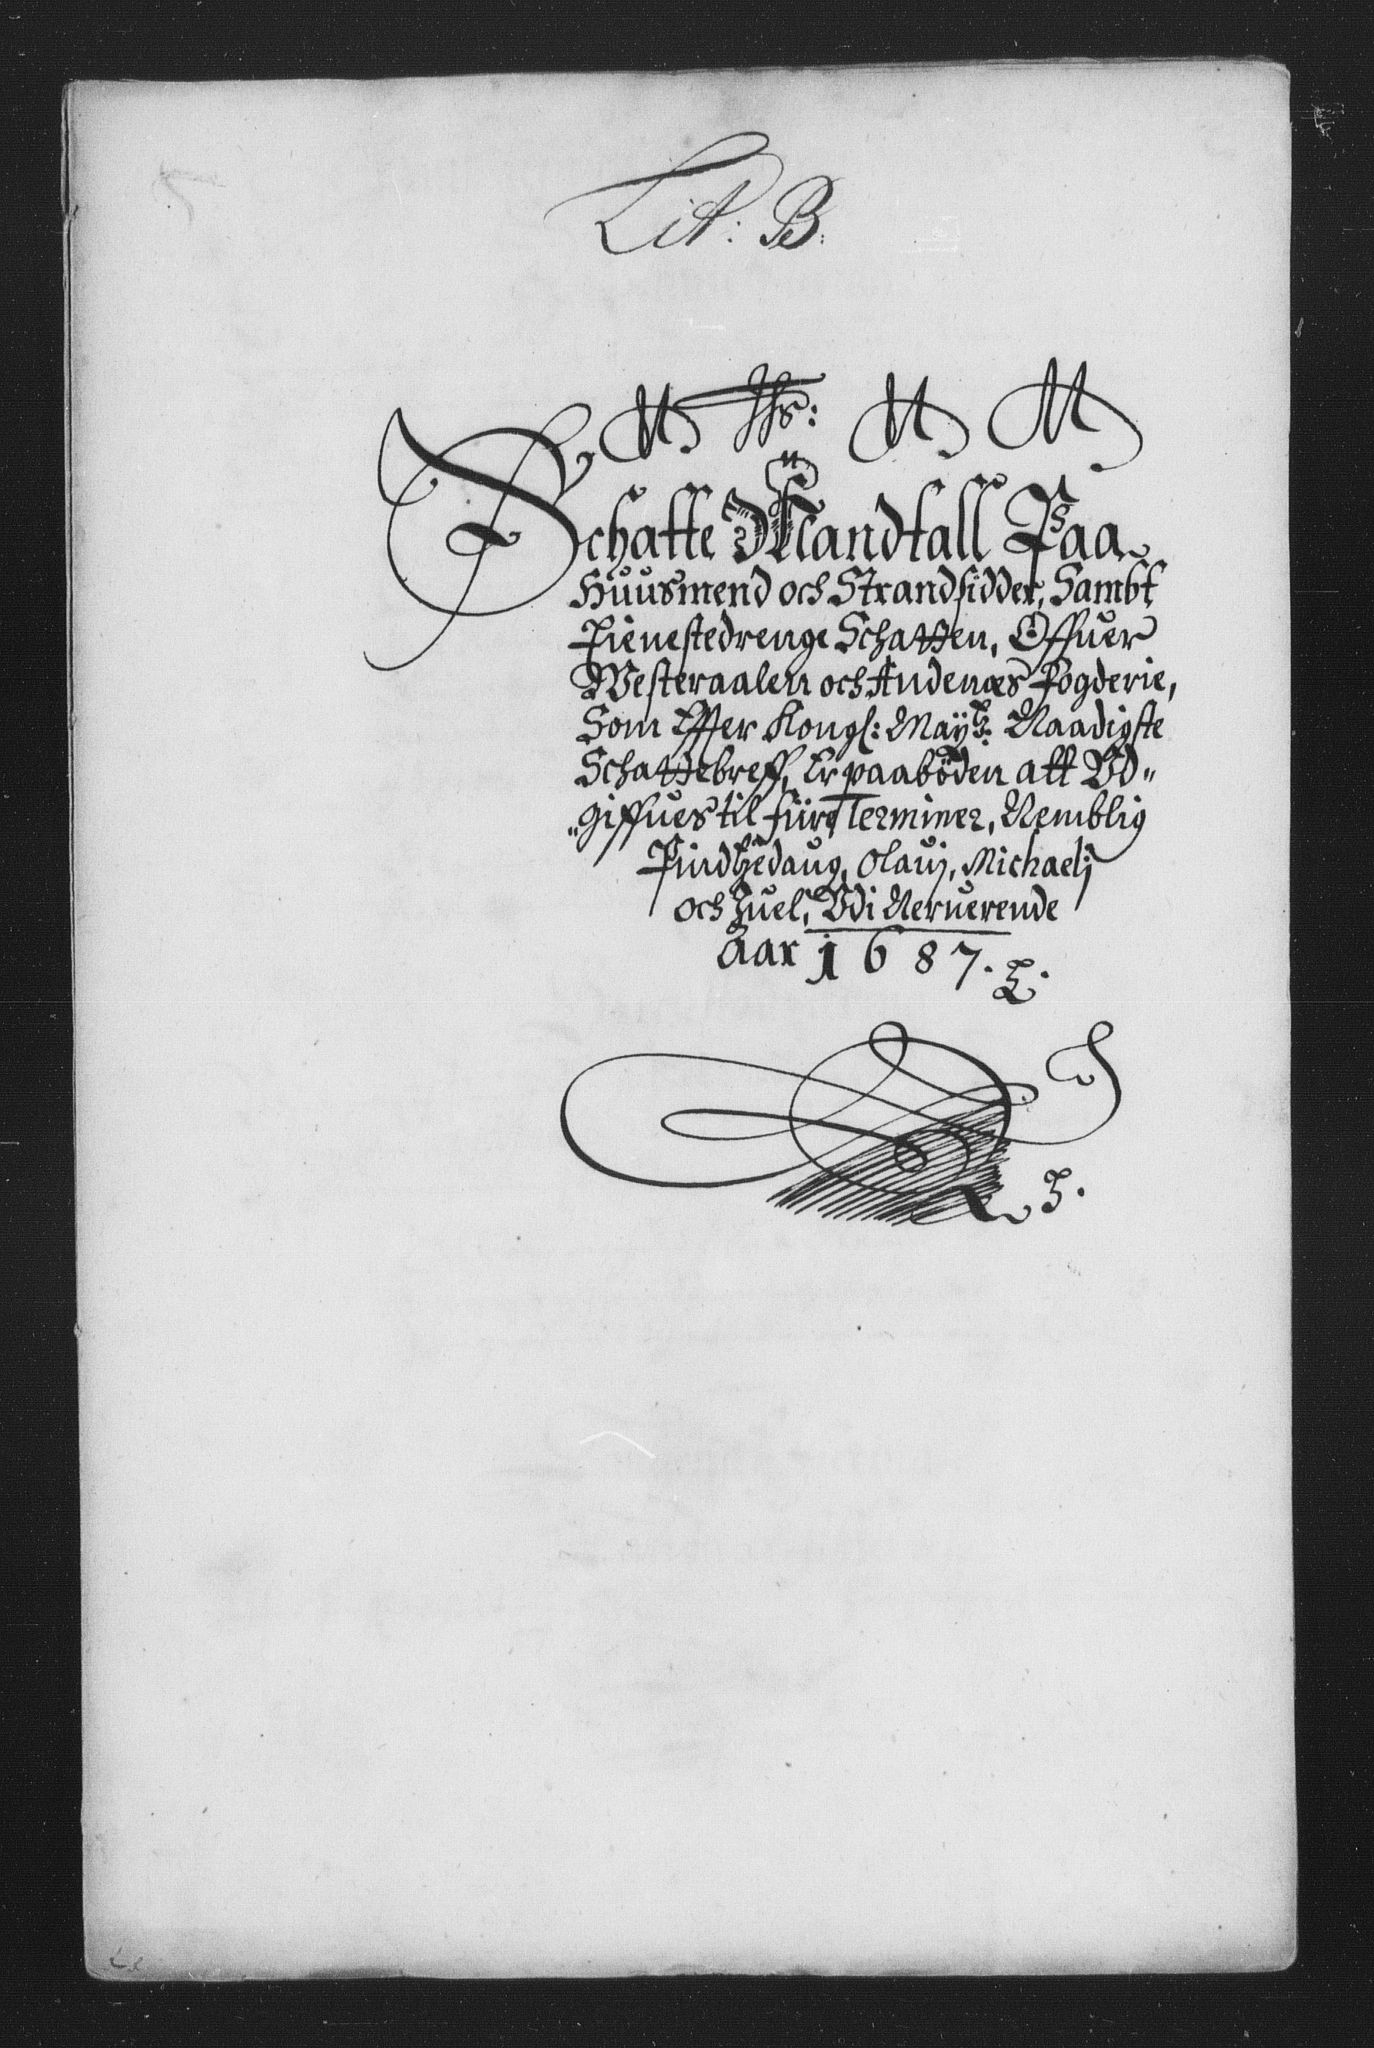 Lit: B:
Jhs:
Schatte Mandtall Paa
Huusmend och Strandsidder, Sambt
Tienestedrenge Schatten, Offuer
Westeraalen och Andenæs Fogderie,
Som Effter Kongl: Mayts: Naadigste
Schattebreff, Er paabøden att Vd-
giffues til fire Terminer, Nemblig
Pindtzedaug, Olavij, Michaelj
och Juel, Vdi Nerverende
Aar 1687.